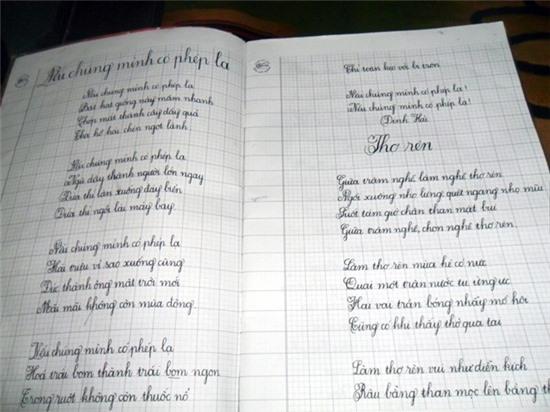 Nếu chúng mình có phép lạ
Nếu chúng mình có phép lạ
Bắt hạt giống nảy mầm nhanh
Chớp mắt thành cây đầy quả
Tha hồ hái chén ngọt lành
Nếu chúng mình có phép lạ
Ngủ dậy thành người lớn ngay
Đứa thì lặn xuống đáy biển
Đứa thì ngồi lái máy bay
Nếu chúng mình có phép lạ
Hái triệu vì sao xuống cùng
Đúc thành ông mặt trời mới
Mãi mãi không còn mùa đông
Nếu chúng mình có phép lạ
Hoá trái bom thành trái ngon
Trong ruột không còn thuốc nổ
Chỉ toàn kẹo với bi tròn
Nếu chúng mình có phép lạ!
Nếu chúng mình có phép lạ!
Định Hải
Thợ rèn
Giữa trăm nghề làm nghề thợ rèn
Ngồi xuống nhọ lưng, quệt ngang nhọ mũi
Suốt tám giờ chân than mặt bụi
Giữa trăm nghề, chọn nghề thợ rèn.
Làm thợ rèn mùa hè có nực
Quai một trận nước tu ừng ực
Hai vai trần bóng nhẫy mồ hôi
Cũng có khi thấy thở qua tai
Làm thợ rèn vui như diễn kịch
Râu bằng than mọc lên bằng